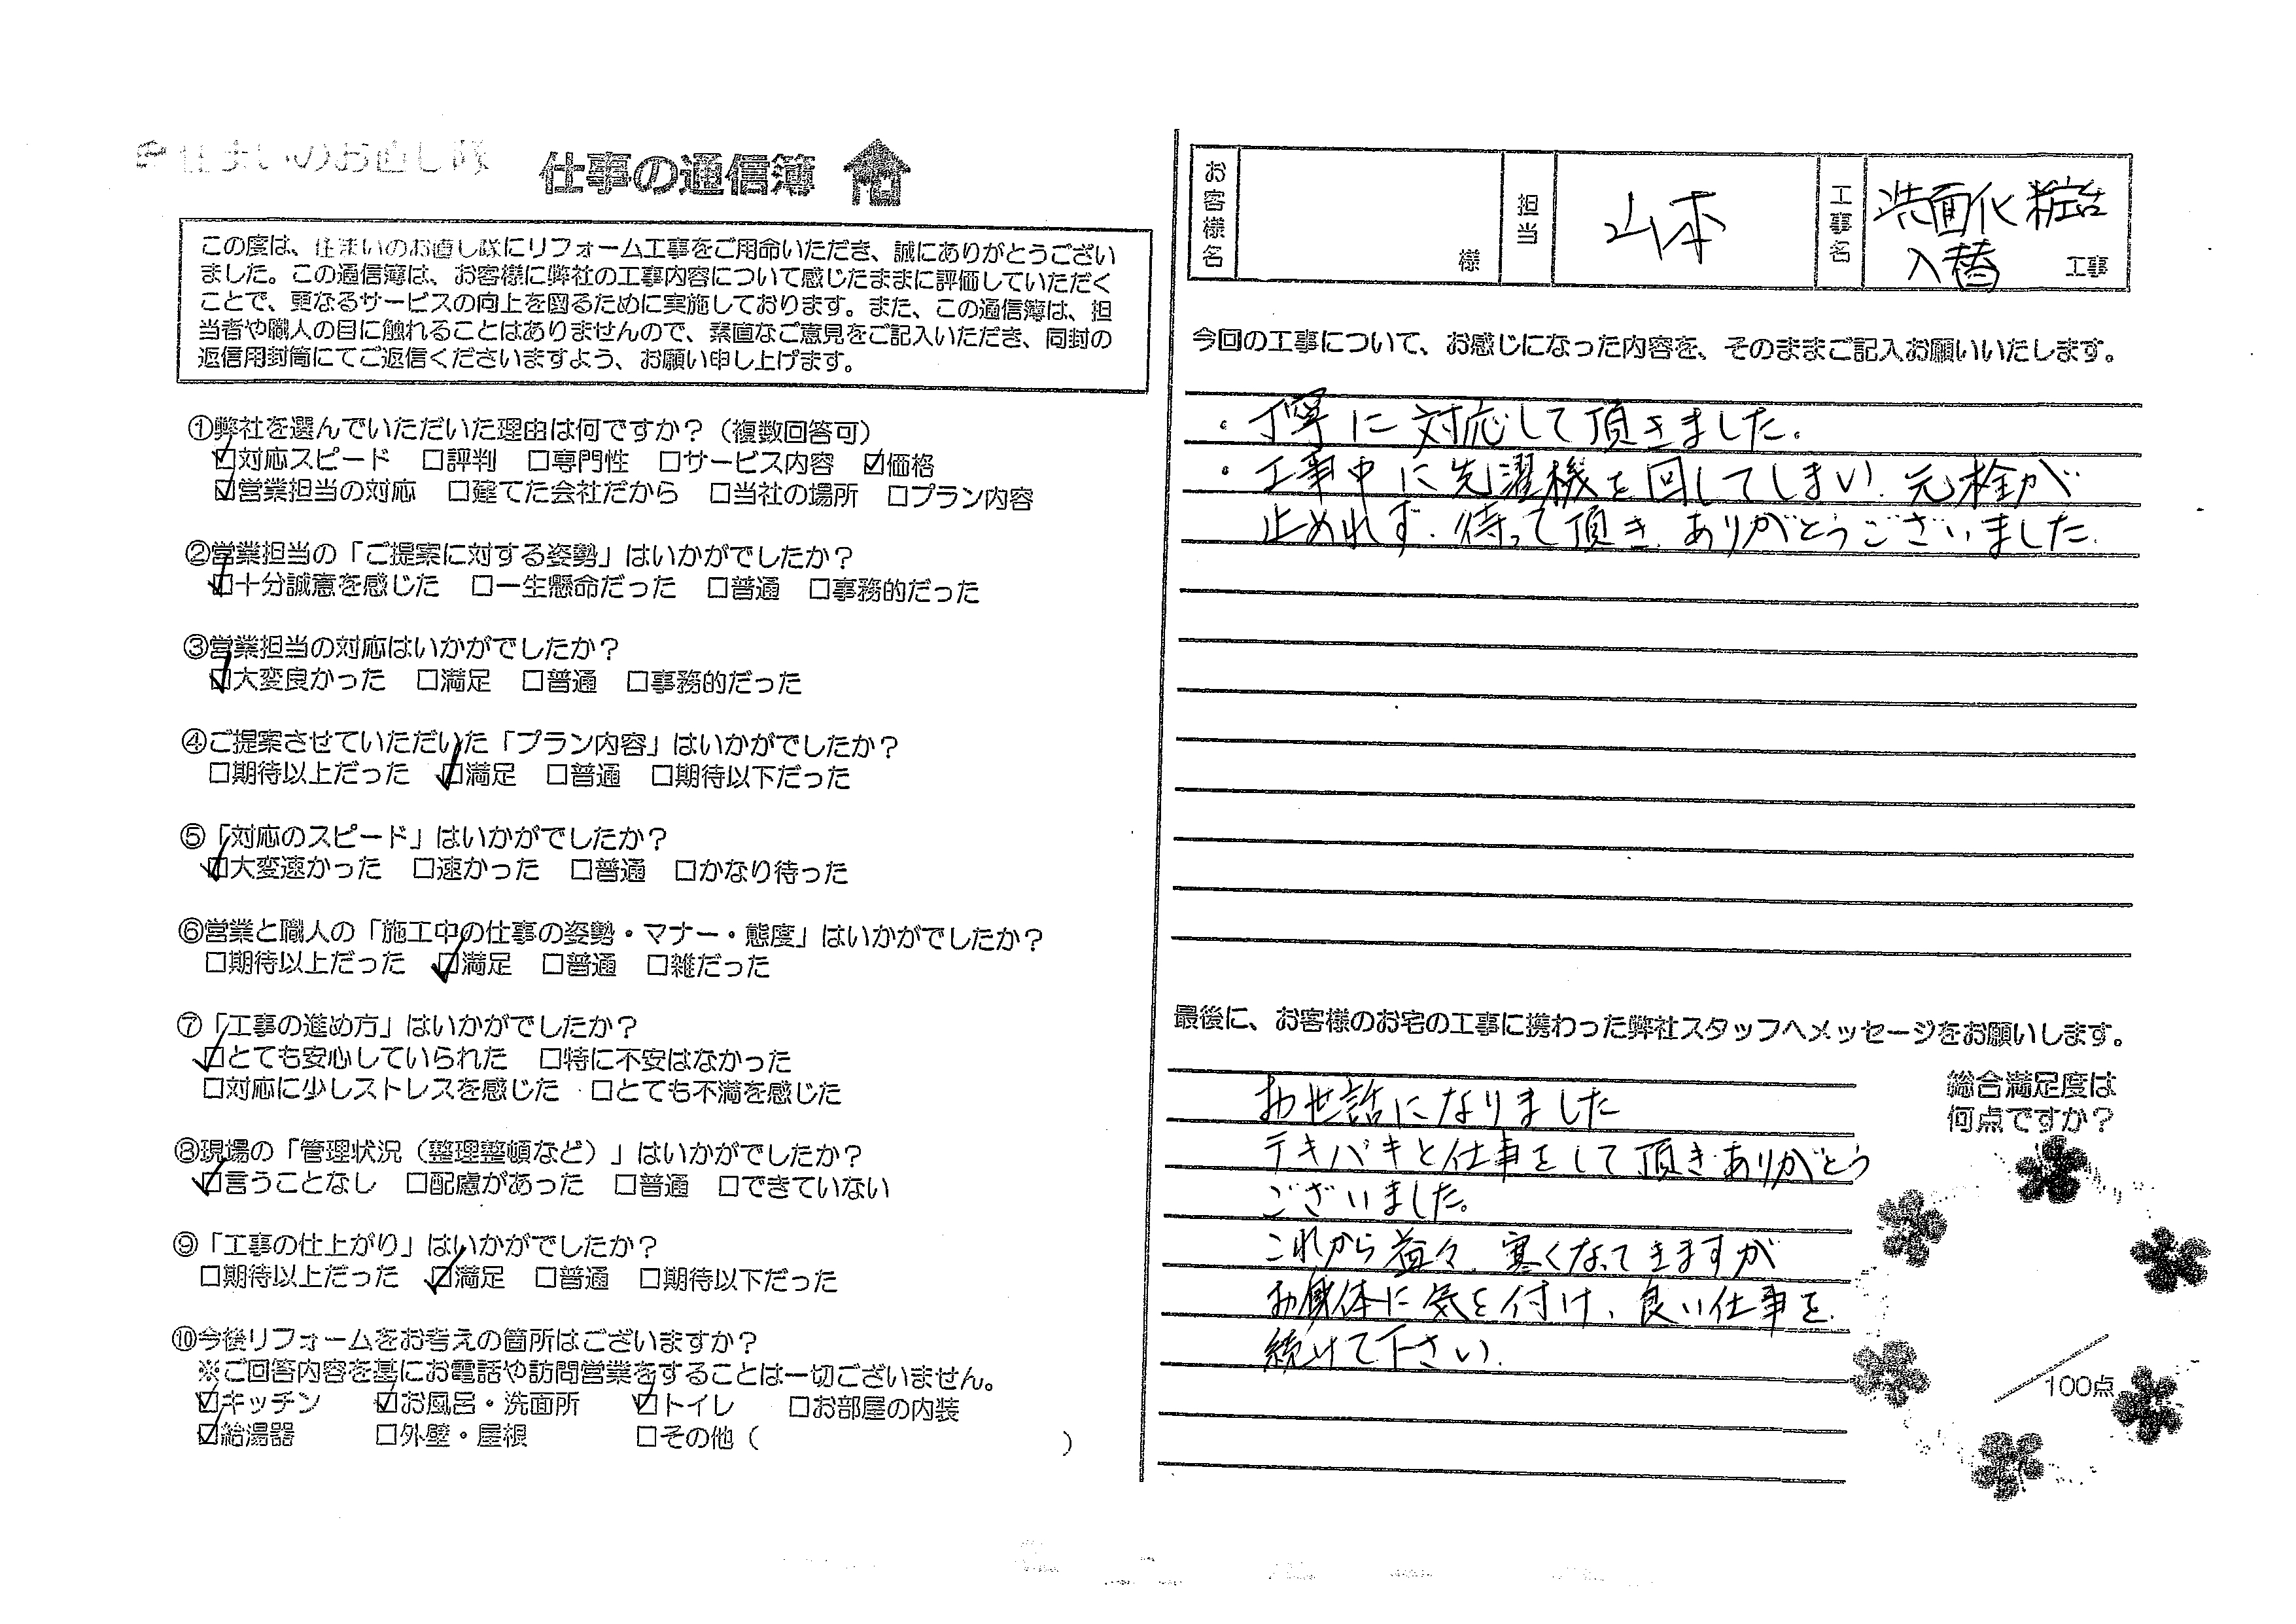 住まいのお直し隊 仕事の通信簿
この度は、住まいのお直し隊にリフォーム工事をご用命いただき、誠にありがとうござい
ました。この通信簿は、お客様に弊社の工事内容について感じたままに評価していただく
ことで、更なるサービスの向上を図るために実施しております。また、この通信簿は、担
当者や職人の目に触れることはありませんので、素直なご意見をご記入いただき、同封の
返信用封筒にてご返信くださいますよう、お願い申し上げます。
①弊社を選んでいただいた理由は何ですか？（複数回答可）
☑対応スピード □評判 □専門性 □サービス内容 ☑価格
☑営業担当の対応 □建てた会社だから □当社の場所 □プラン内容
②営業担当の「ご提案に対する姿勢」はいかがでしたか？
☑十分誠意を感じた □一生懸命だった □普通 □事務的だった
③営業担当の対応はいかがでしたか？
☑大変良かった □満足 □普通 □事務的だった
④ご提案させていただいた「プラン内容」はいかがでしたか？
□期待以上だった ☑満足 □普通 □期待以下だった
⑤「対応のスピード」はいかがでしたか？
☑大変速かった □速かった □普通 □かなり待った
⑥営業と職人の「施工中の仕事の姿勢・マナー・態度」はいかがでしたか？
□期待以上だった ☑満足 □普通 □雑だった
⑦「工事の進め方」はいかがでしたか？
☑とても安心していられた □特に不安はなかった
□対応に少しストレスを感じた □とても不満を感じた
⑧現場の「管理状況（整理整頓など）」はいかがでしたか？
☑言うことなし □配慮があった □普通 □できていない
⑨「工事の仕上がり」はいかがでしたか？
□期待以上だった ☑満足 □普通 □期待以下だった
⑩今後リフォームをお考えの箇所はございますか？
※ご回答内容を基にお電話や訪問営業をすることは一切ございません。
☑キッチン ☑お風呂・洗面所 ☑トイレ □お部屋の内装
☑給湯器 □外壁・屋根 □その他（ ）
お客様名 様 担当 山本 工事名 洗面化粧台
入替 工事
今回の工事について、お感じになった内容を、そのままご記入お願いいたします。
・丁寧に対応して頂きました。
・工事中に洗濯機を回してしまい、元栓が
止めれず、待って頂き、ありがとうございました。
最後に、お客様のお宅の工事に携わった弊社スタッフへメッセージをお願いします。
お世話になりました
テキパキと仕事をして頂きありがとう
ございました。
これから益々、寒くなってきますが
お身体に気を付け、良い仕事を
続けて下さい。
総合満足度は
何点ですか？
／100点